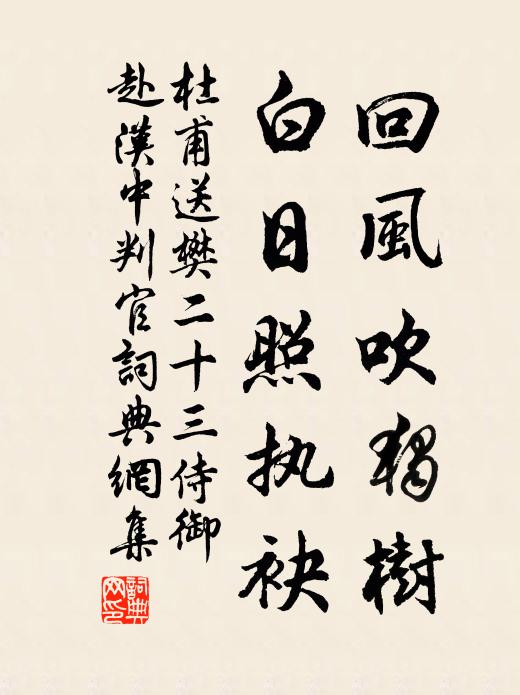 回風吹獨樹
白日照执袂
杜甫送樊二十三侍御
赴漢中判官詞典網集
詞典網印